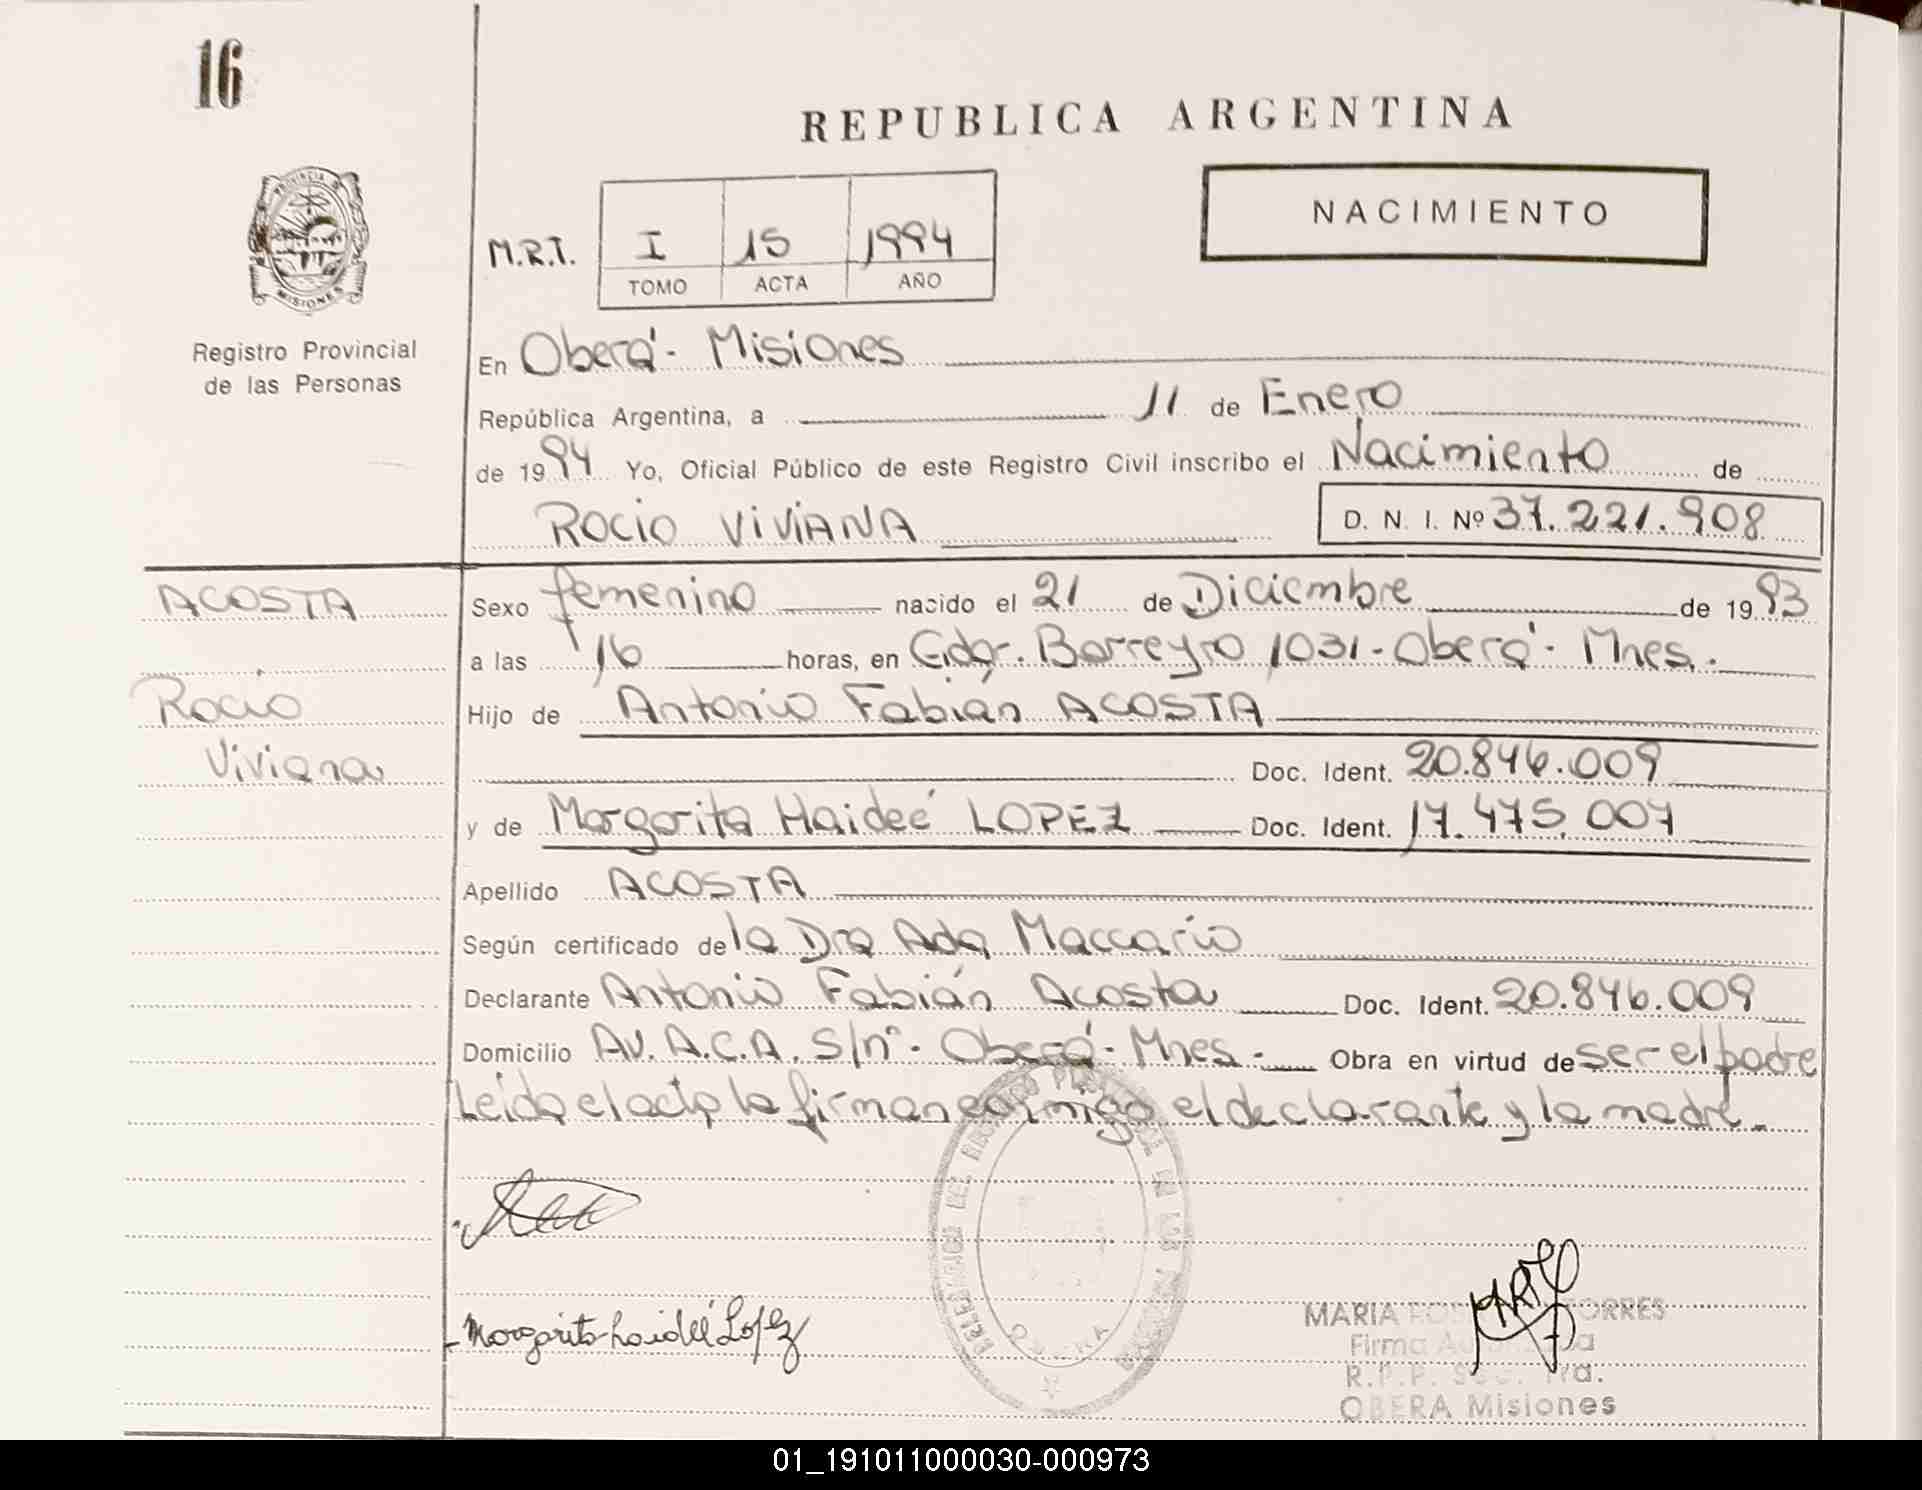 16
REPUBLICA ARGENTINA
NACIMIENTO
PROVINCIA DE
MISIONES
M.R.T. I 15 1994
TOMO ACTA AÑO
Registro Provincial
de las Personas
En Oberá - Misiones
República Argentina, a 11 de Enero
de 1994 Yo, Oficial Público de este Registro Civil inscribo el Nacimiento de
ROCIO VIVIANA D. N. I. Nº 37.221.908
ACOSTA
Rocio
Viviana
Sexo femenino nacido el 21 de Diciembre de 1993
a las 16 horas, en Gdor. Barreyro 1031 - Oberá - Mnes.
Hijo de Antonio Fabián ACOSTA
Doc. Ident. 20.846.009
y de Margarita Haideé LOPEZ Doc. Ident. 17.475.007
Apellido ACOSTA
Según certificado de la Dra Ada Maccario
Declarante Antonio Fabián Acosta Doc. Ident. 20.846.009
Domicilio AV. A.C.A. S/nº - Oberá - Mnes. - Obra en virtud de ser el padre
Leida el acta la firman conmigo el declarante y la madre.
Margarita haideé Lopez
MARIA TORRES
Firma
R.P.P.
OBERA Misiones
01_191011000030-000973